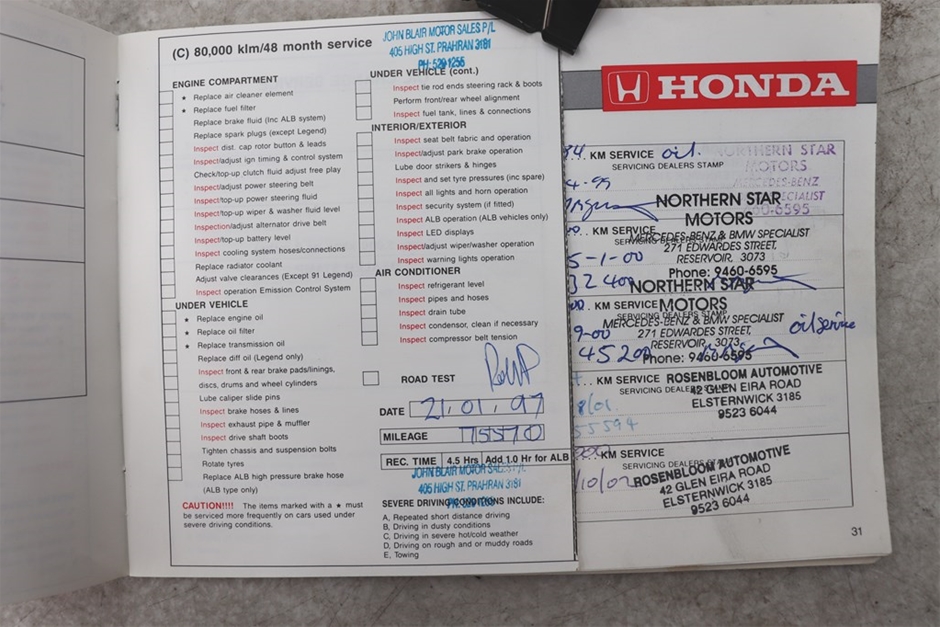 (C) 80,000 klm/48 month service
JOHN BLAIR MOTOR SALES P/L
405 HIGH ST. PRAHRAN 3181
PH: 5291255
ENGINE COMPARTMENT
★ Replace air cleaner element
★ Replace fuel filter
Replace brake fluid (Inc ALB system)
Replace spark plugs (except Legend)
Inspect dist. cap rotor button & leads
Inspect/adjust ign timing & control system
Check/top-up clutch fluid adjust free play
Inspect/adjust power steering belt
Inspect/top-up power steering fluid
Inspect/top-up wiper & washer fluid level
Inspection/adjust alternator drive belt
Inspect/top-up battery level
Inspect cooling system hoses/connections
Replace radiator coolant
Adjust valve clearances (Except 91 Legend)
Inspect operation Emission Control System
UNDER VEHICLE
★ Replace engine oil
★ Replace oil filter
★ Replace transmission oil
Replace diff oil (Legend only)
Inspect front & rear brake pads/linings,
discs, drums and wheel cylinders
Lube caliper slide pins
Inspect brake hoses & lines
Inspect exhaust pipe & muffler
Inspect drive shaft boots
Tighten chassis and suspension bolts
Rotate tyres
Replace ALB high pressure brake hose
(ALB type only)
CAUTION!!!! The items marked with a ★ must
be serviced more frequently on cars used under
severe driving conditions.
UNDER VEHICLE (cont.)
Inspect tie rod ends steering rack & boots
Perform front/rear wheel alignment
Inspect fuel tank, lines & connections
INTERIOR/EXTERIOR
Inspect seat belt fabric and operation
Inspect/adjust park brake operation
Lube door strikers & hinges
Inspect and set tyre pressures (inc spare)
Inspect all lights and horn operation
Inspect security system (if fitted)
Inspect ALB operation (ALB vehicles only)
Inspect LED displays
Inspect/adjust wiper/washer operation
Inspect warning lights operation
AIR CONDITIONER
Inspect refrigerant level
Inspect pipes and hoses
Inspect drain tube
Inspect condensor, clean if necessary
Inspect compressor belt tension
ROAD TEST
DATE 21.01.97
MILEAGE
REC. TIME 4.5 Hrs Add 1.0 Hr for ALB
JOHN BLAIR MOTOR SALES P/L
405 HIGH ST. PRAHRAN 3181
SEVERE DRIVING CONDITIONS INCLUDE:
A, Repeated short distance driving
B, Driving in dusty conditions
C, Driving in severe hot/cold weather
D, Driving on rough and or muddy roads
E, Towing
HONDA
KM SERVICE oil.
SERVICING DEALERS STAMP
NORTHERN STAR
MOTORS
MERCEDES-BENZ
SPECIALIST
9460-6595
4-99
NORTHERN STAR
MOTORS
KM SERVICE
SERVICING DEALERS STAMP
MERCEDES-BENZ & BMW SPECIALIST
271 EDWARDES STREET,
RESERVOIR, 3073
Phone: 9460-6595
5-1-00
32400
NORTHERN STAR
MOTORS
KM SERVICE
SERVICING DEALERS STAMP
MERCEDES-BENZ & BMW SPECIALIST
271 EDWARDES STREET,
RESERVOIR, 3073
Phone: 9460-6595
oil service
9-00
45200
KM SERVICE
SERVICING DEALERS STAMP
ROSENBLOOM AUTOMOTIVE
42 GLEN EIRA ROAD
ELSTERNWICK 3185
9523 6044
8/01.
55594
KM SERVICE
SERVICING DEALERS STAMP
ROSENBLOOM AUTOMOTIVE
42 GLEN EIRA ROAD
ELSTERNWICK 3185
9523 6044
/10/02
31